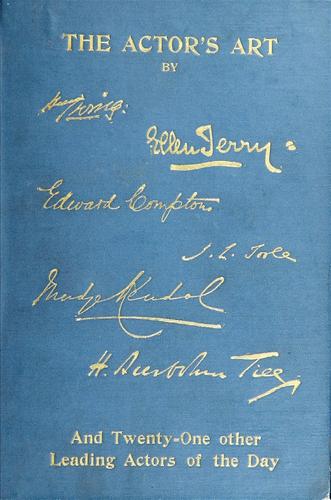 THE ACTOR'S ART
BY
Henry Irving.
Ellen Terry
Edward Compton
J. L. Toole
Madge Kendal
H. Beerbohm Tree
And Twenty-One other
Leading Actors of the Day